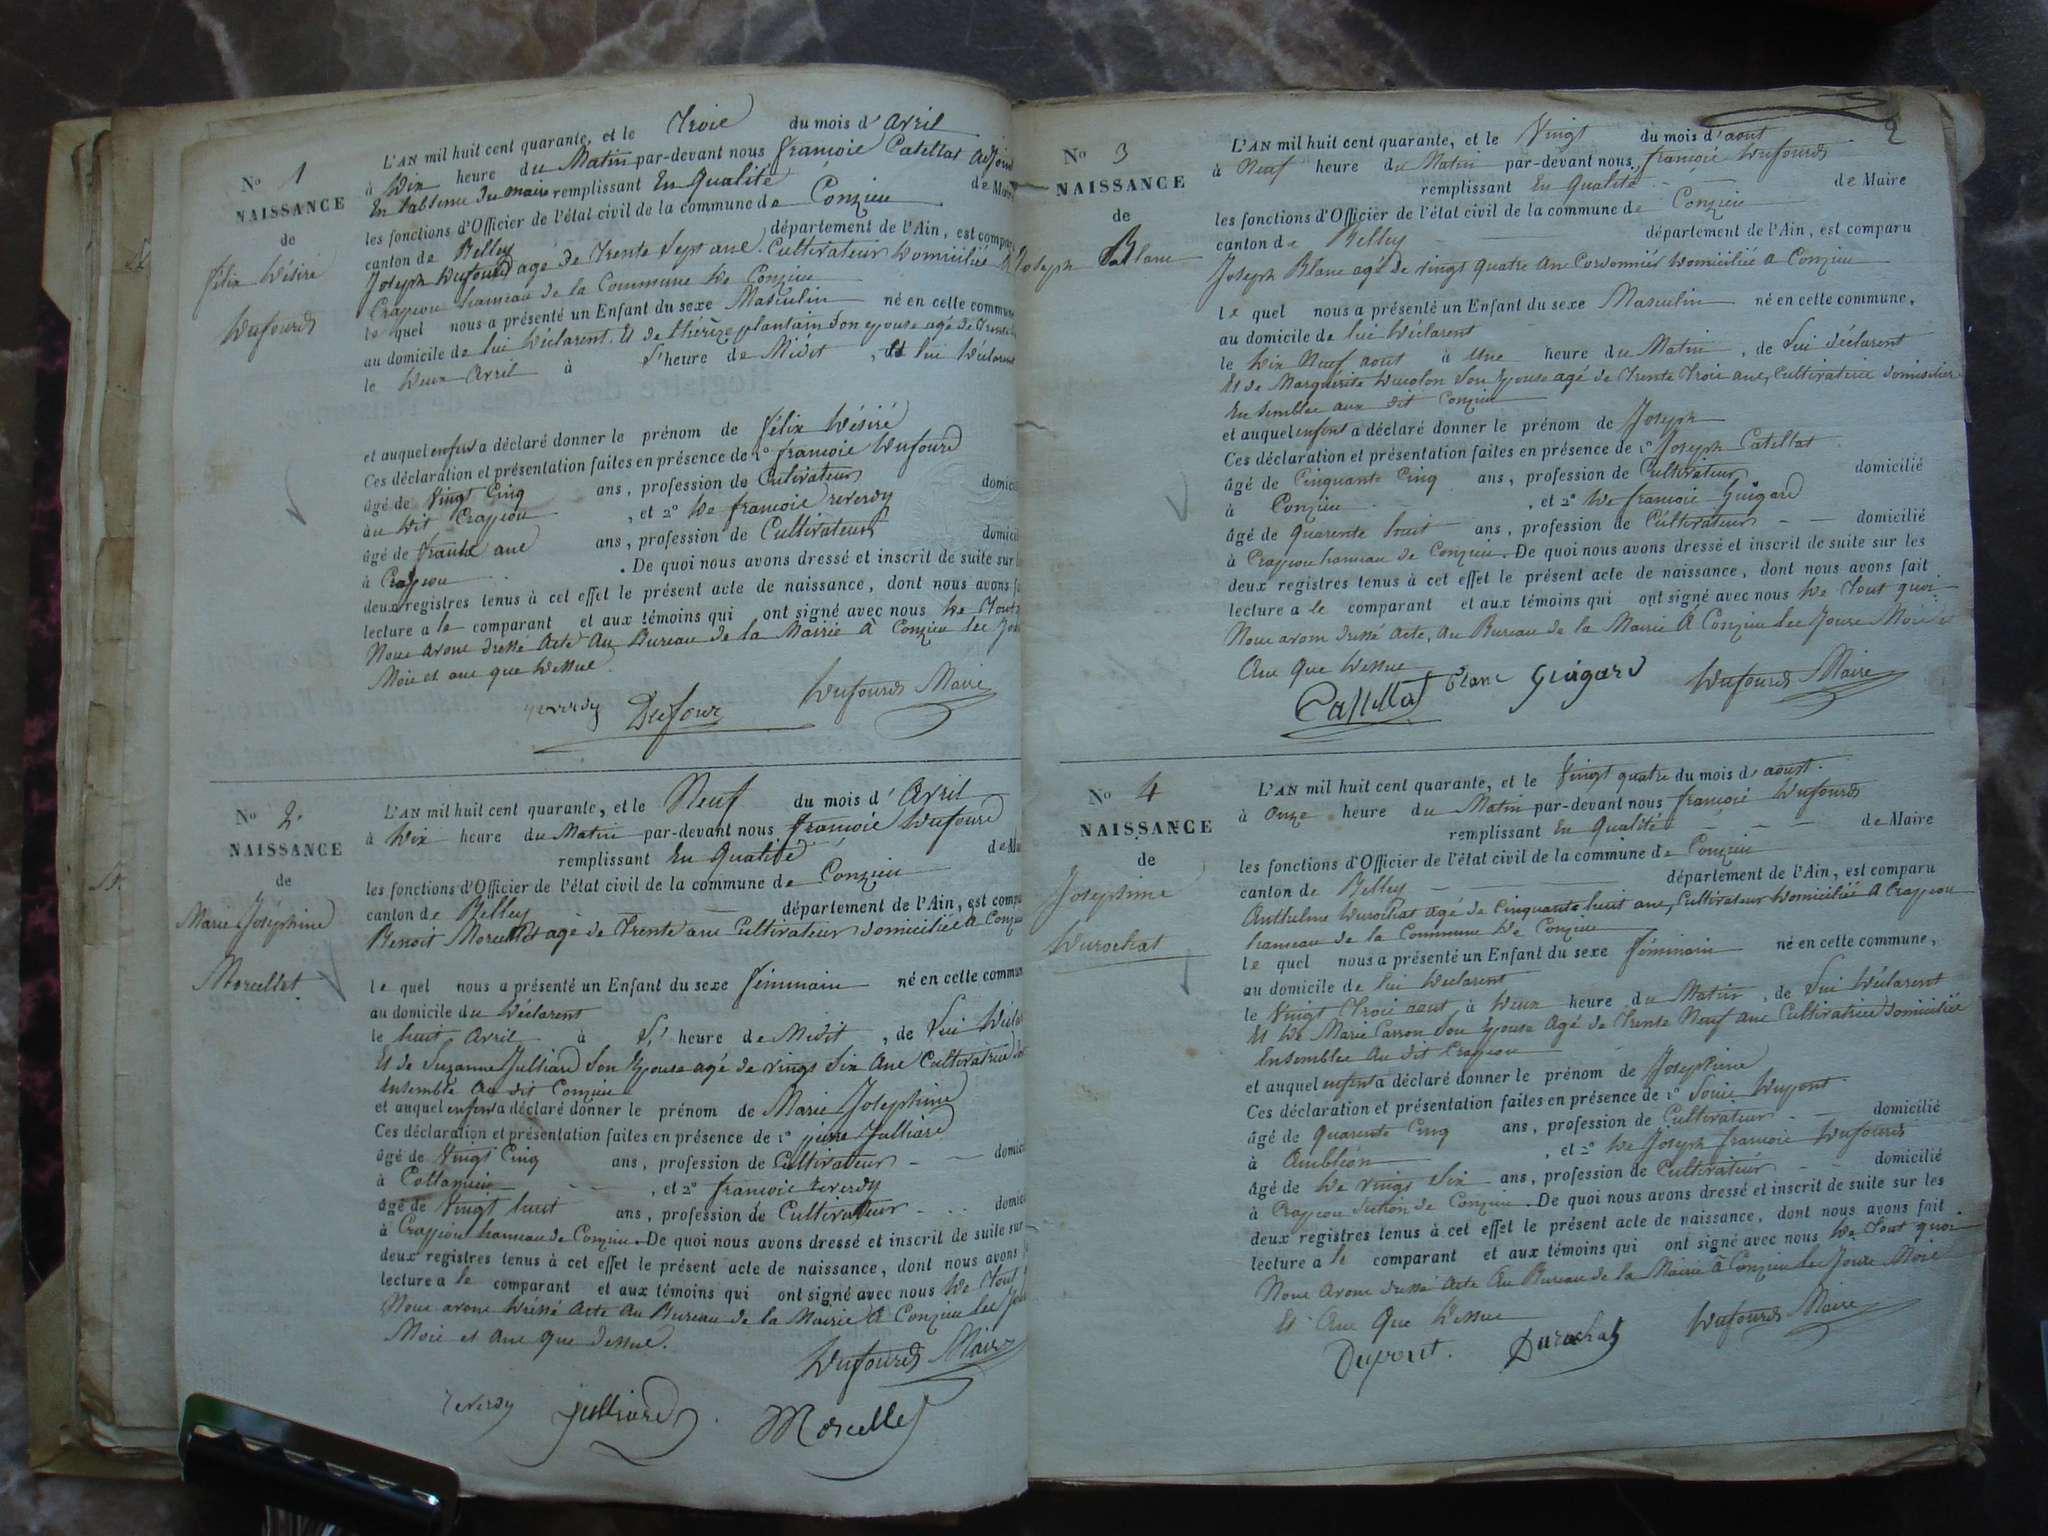 N° 1
NAISSANCE
de
félix Désiré
Dufourd
L'AN mil huit cent quarante, et le Trois du mois d' avril
à Dix heure du Matin par-devant nous françois Catellat adjoint
En l'absence du maire remplissant En Qualité de Maire
les fonctions d'Officier de l'état civil de la commune de Conzieu
canton de Belley département de l'Ain, est comparu
Joseph Dufourd agé de Trente Sept ans Cultivateur Domicilié
Crapeou hameau de la Commune De Conzieu
le quel nous a présenté un Enfant du sexe Masculin né en cette commune
au domicile de lui Déclarent. Et de thérèze plantain Son epouse agé de Trente
le Deux Avril à L'heure de Midit , de lui Déclarent
et auquel enfent a déclaré donner le prénom de félix Désiré
Ces déclaration et présentation faites en présence de 1° françois Dufourd
âgé de Vingt Cinq ans, profession de Cultivateur domici
au Dit Crapeou , et 2° De françois reverdy
âgé de trante ans ans, profession de Cultivateur domici
à Crapeou . De quoi nous avons dressé et inscrit de suite sur
deux registres tenus à cet effet le présent acte de naissance, dont nous avons
lecture a le comparant et aux témoins qui ont signé avec nous De Tout
Nous avons dressé Acte Au Bureau de la Mairie à Conzieu les Jour
Mois et ans que Dessus
reverdy Dufour Dufourd Maire
N° 2
NAISSANCE
de
Marie Joséphine
Morcellet
L'AN mil huit cent quarante, et le Neuf du mois d' Avril
à Dix heure du Matin par-devant nous françois Dufourd
remplissant En Qualité de
les fonctions d'Officier de l'état civil de la commune de Conzieu
canton de Belley département de l'Ain, est compa
Benoit Morcellet agé de Trente ans Cultivateur domiciliée a Conzieu
le quel nous a présenté un Enfant du sexe féminain né en cette commun
au domicile du Déclarent
le huit avril à L' heure de Midit , de Lui
Et de Suzanne Julliard Son Epouse agé de vingt Six Ans Cultivatrice
ensemble au dit Conzieu
et auquel enfent a déclaré donner le prénom de Marie Joséphine
Ces déclaration et présentation faites en présence de 1° Julliard
âgé de Vingt Cinq ans, profession de Cultivateur domici
à , et 2° françois reverdy
âgé de Vingt huit ans, profession de Cultivateur domici
à Crapeou hameau de Conzieu. De quoi nous avons dressé et inscrit de suite sur
deux registres tenus à cet effet le présent acte de naissance, dont nous avons
lecture a le comparant et aux témoins qui ont signé avec nous De Tout
Nous avons Dréssé Acte Au Bureau de la Mairie A Conzieu les
Mois et ans que Dessus.
Dufourd Maire
reverdy julliard Morcellet
2
N° 3
NAISSANCE
de
Joseph Blanc
L'AN mil huit cent quarante, et le Vingt du mois d' aout
à Neuf heure du Matin par-devant nous françois Dufourd
remplissant En Qualité de Maire
les fonctions d'Officier de l'état civil de la commune de Conzieu
canton de Belley département de l'Ain, est comparu
Joseph Blanc agé de vingt quatre ans Cordonnier Domiciliée a Conzieu
le quel nous a présenté un Enfant du sexe Masculin né en cette commune,
au domicile de lui Déclarent
le Dix Neuf aout à Une heure du Matin , de Lui déclarent
Et de Marguérite Ducolon Son Epouse agé de Trente Trois ans, Cultivatrice domiciliée
Ensemblee aux dit Conzieu
et auquel enfent a déclaré donner le prénom de Joseph
Ces déclaration et présentation faites en présence de 1° Joseph Catellat
âgé de Cinquante Cinq ans, profession de Cultivateur domicilié
à Conzieu , et 2° De françois Guigard
âgé de Quarente huit ans, profession de Cultivateur domicilié
à Crapeou hameau de Conzieu. De quoi nous avons dressé et inscrit de suite sur les
deux registres tenus à cet effet le présent acte de naissance, dont nous avons fait
lecture a le comparant et aux témoins qui ont signé avec nous De Tout quoi
Nous avons dressé Acte, au Bureau de la Mairie A Conzieu les Jours Mois et
Ans Que Dessus
Catellat Blanc Guigard Dufourd Maire
N° 4
NAISSANCE
de
Joséphine
Durochat
L'AN mil huit cent quarante, et le Vingt quatre du mois d' aoust.
à Onze heure du Matin par-devant nous françois Dufourd
remplissant En Qualité de Maire
les fonctions d'Officier de l'état civil de la commune de Conzieu
canton de Belley département de l'Ain, est comparu
Anthelme Durochat agé de cinquante huit ans, Cultivateur Domiciliée A Crapeou
hameau de la Commune De Conzieu
le quel nous a présenté un Enfant du sexe féminain né en cette commune,
au domicile de lui Déclarent
le Vingt Trois aout à Deux heure du Matin , de Lui Déclarent
Et De Marie Carron Son Epouse Agé de Trente Neuf ans Cultivatrice domiciliée
Ensemblee Au dit Crapeou
et auquel enfent a déclaré donner le prénom de Joséphine
Ces déclaration et présentation faites en présence de 1° Louis Dupont
âgé de Quarente Cinq ans, profession de Cultivateur domicilié
à Ambléon , et 2° De Joseph françois Dufourd
âgé de De vingt Six ans, profession de Cultivateur domicilié
à Crapeou Section de Conzieu. De quoi nous avons dressé et inscrit de suite sur les
deux registres tenus à cet effet le présent acte de naissance, dont nous avons fait
lecture a le comparant et aux témoins qui ont signé avec nous De Tout quoi
Nous Avons dressé Acte Au Bureau de la Mairie à Conzieu les Jours Mois
Et Ans Que Dessus
Dupont. Durochat Dufourd Maire